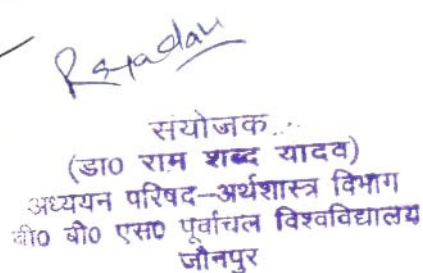 RSYadav
संयोजक
(डा० राम शब्द यादव)
अध्ययन परिषद–अर्थशास्त्र विभाग
वी० बी० एस० पूर्वांचल विश्वविद्यालय
जौनपुर